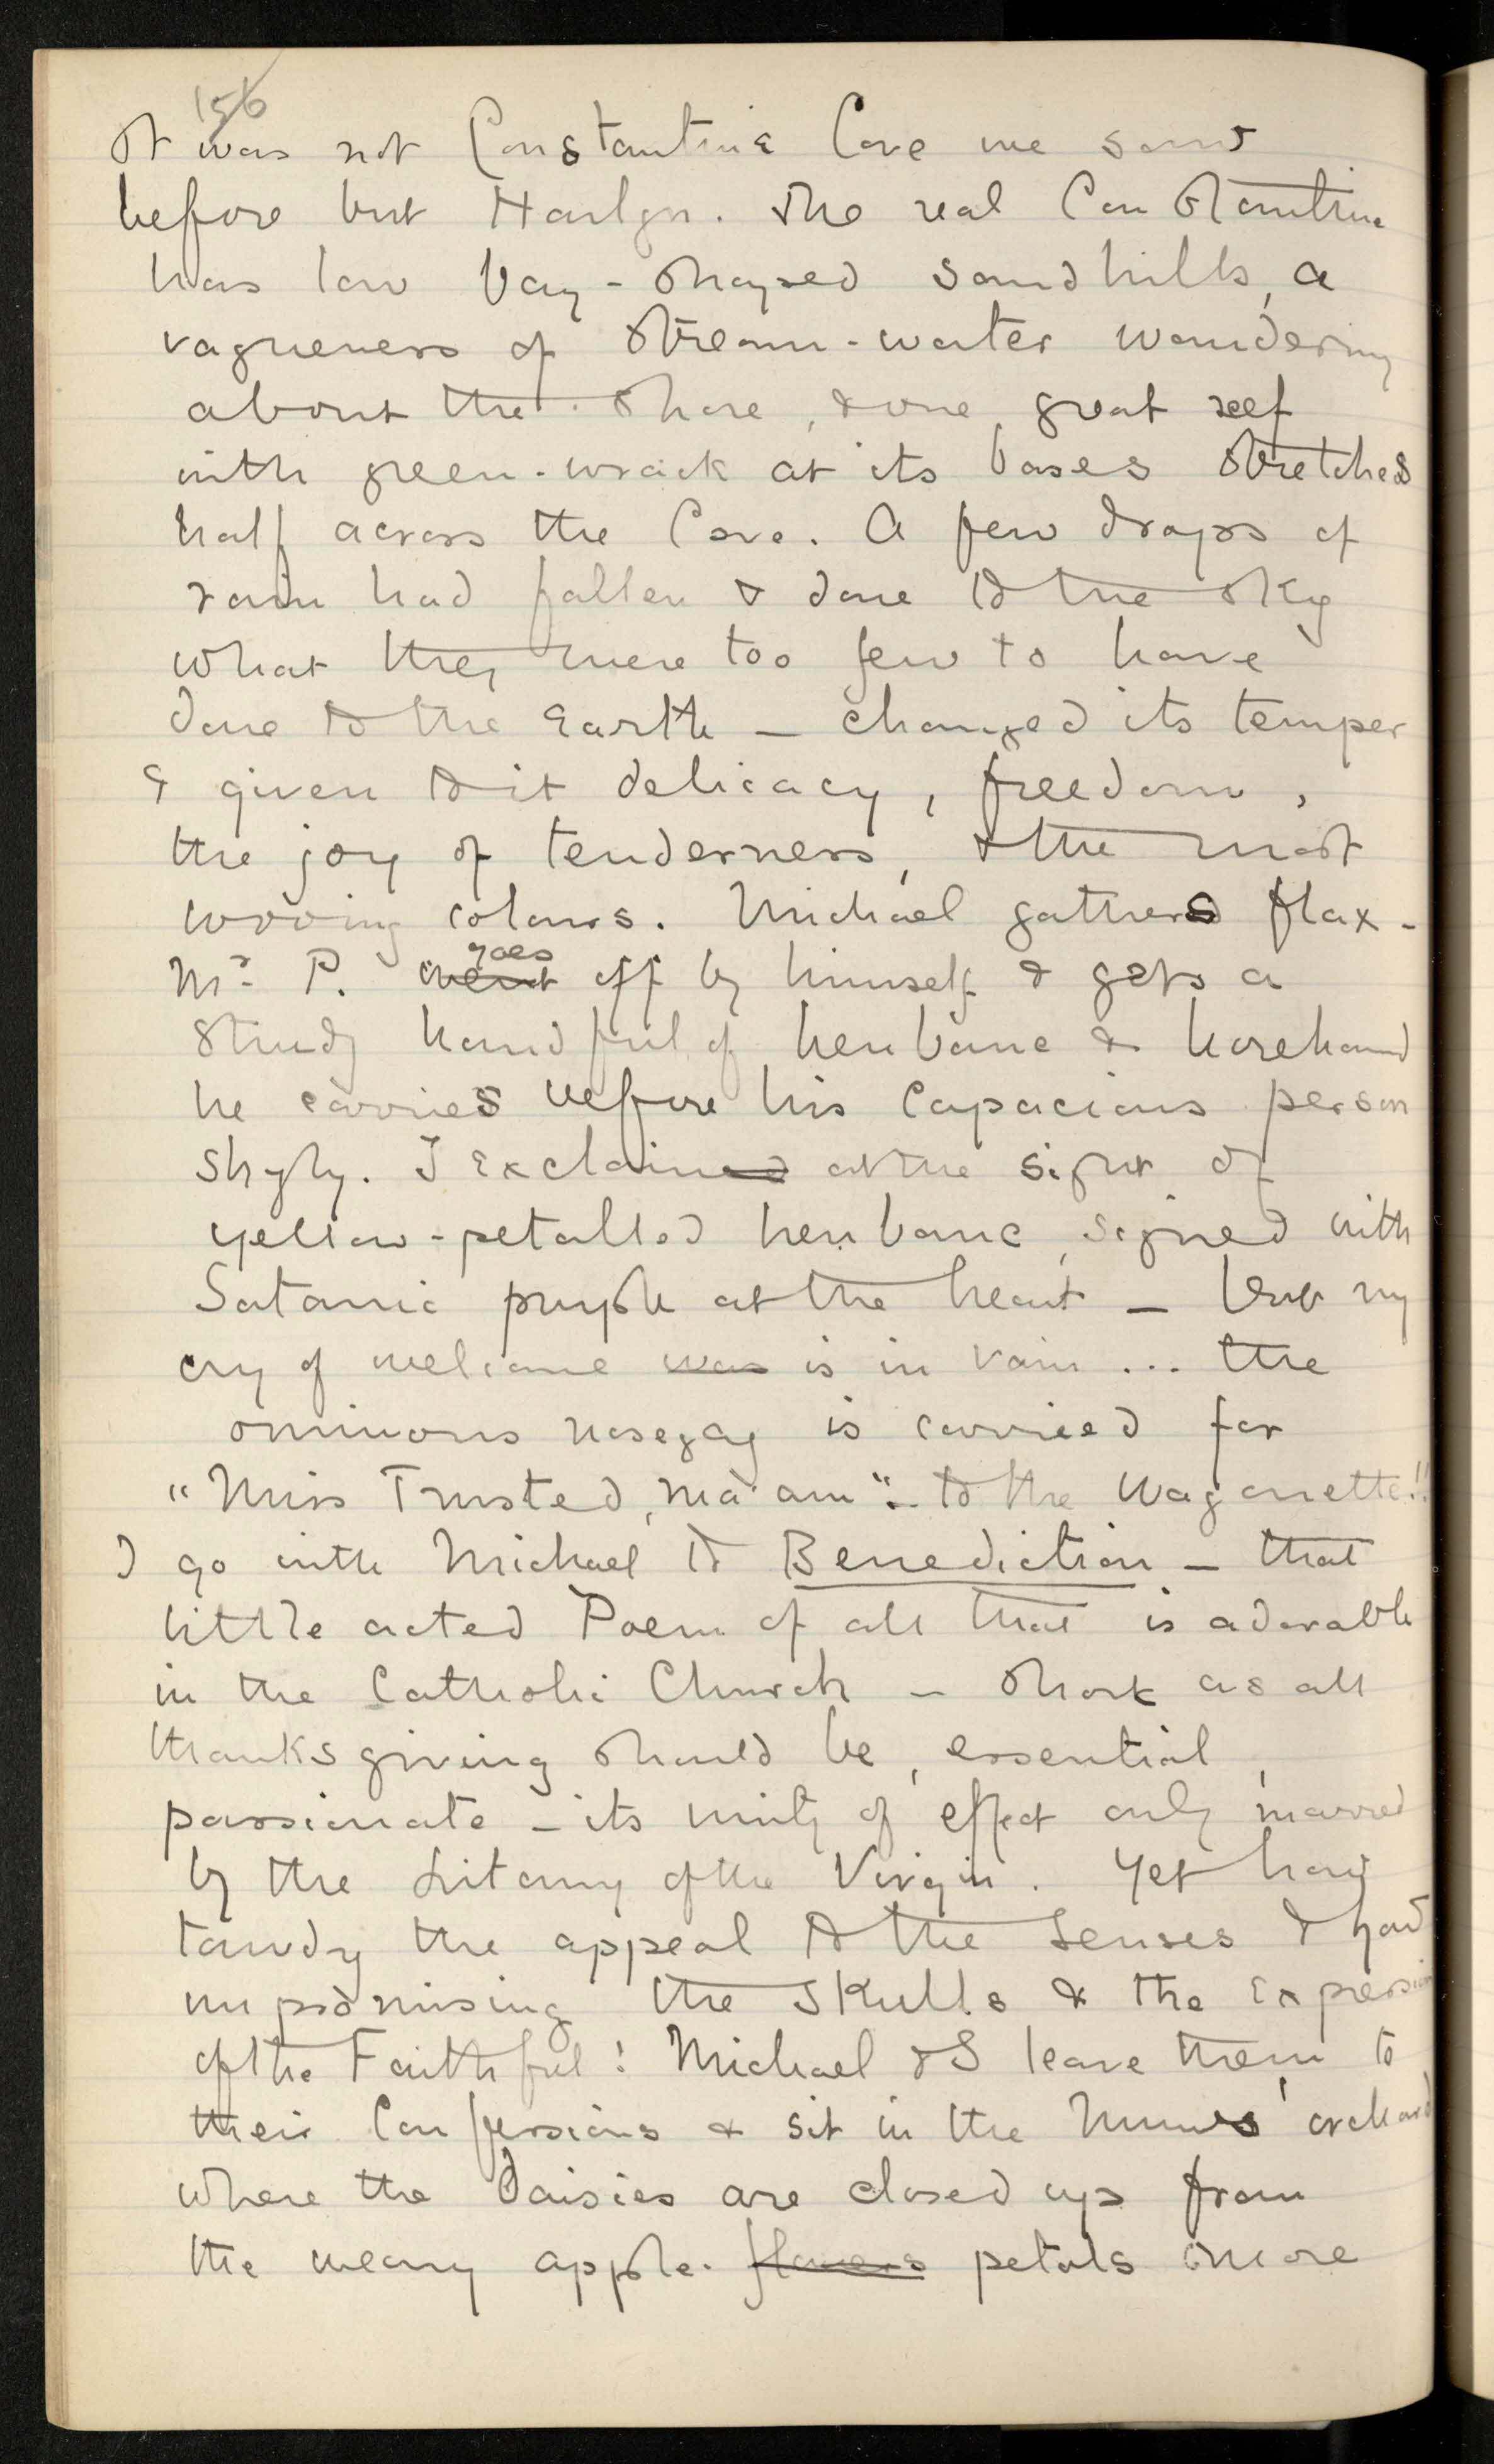 156
It was not Constantine Cove we saw
before but Harlyn. The real Constantine
has low bay-shaped sandhills, a
vagueness of stream-water wandering
about the shore, & one great reef
with green-wrack at its bases stretches
half across the Cove. A few drops of
rain had fallen & done to the sky
what they were too few to have
done to the Earth — changed its temper
& given to it delicacy, freedom,
the joy of tenderness, & the most
wooing colours. Michael gathers flax –
Mr P. went goes off by himself & gets a
sturdy handful of henbane & horehound
he carries before his capacious person
shyly. I exclaimed at the sight of
yellow-petalled henbane, signed with
Satanic purple at the heart — but my
cry of welcome was is in vain ... the
ominous nosegay is carried for
"Miss Trusted, ma'am" – to the wagonette!!
I go with Michael to Benediction — that
little acted Poem of all that is adorable
in the Catholic Church – short as all
thanksgiving should be, essential,
passionate – its unity of effect only marred
by the Litany of the Virgin. Yet how
tawdry the appeal to the senses & how
unpromising the skulls & the expression
of the Faithful! Michael & I leave them to
their Confessions & sit in the Nuns' orchard
where the daisies are closed up from
the weary apple- flowers petals more